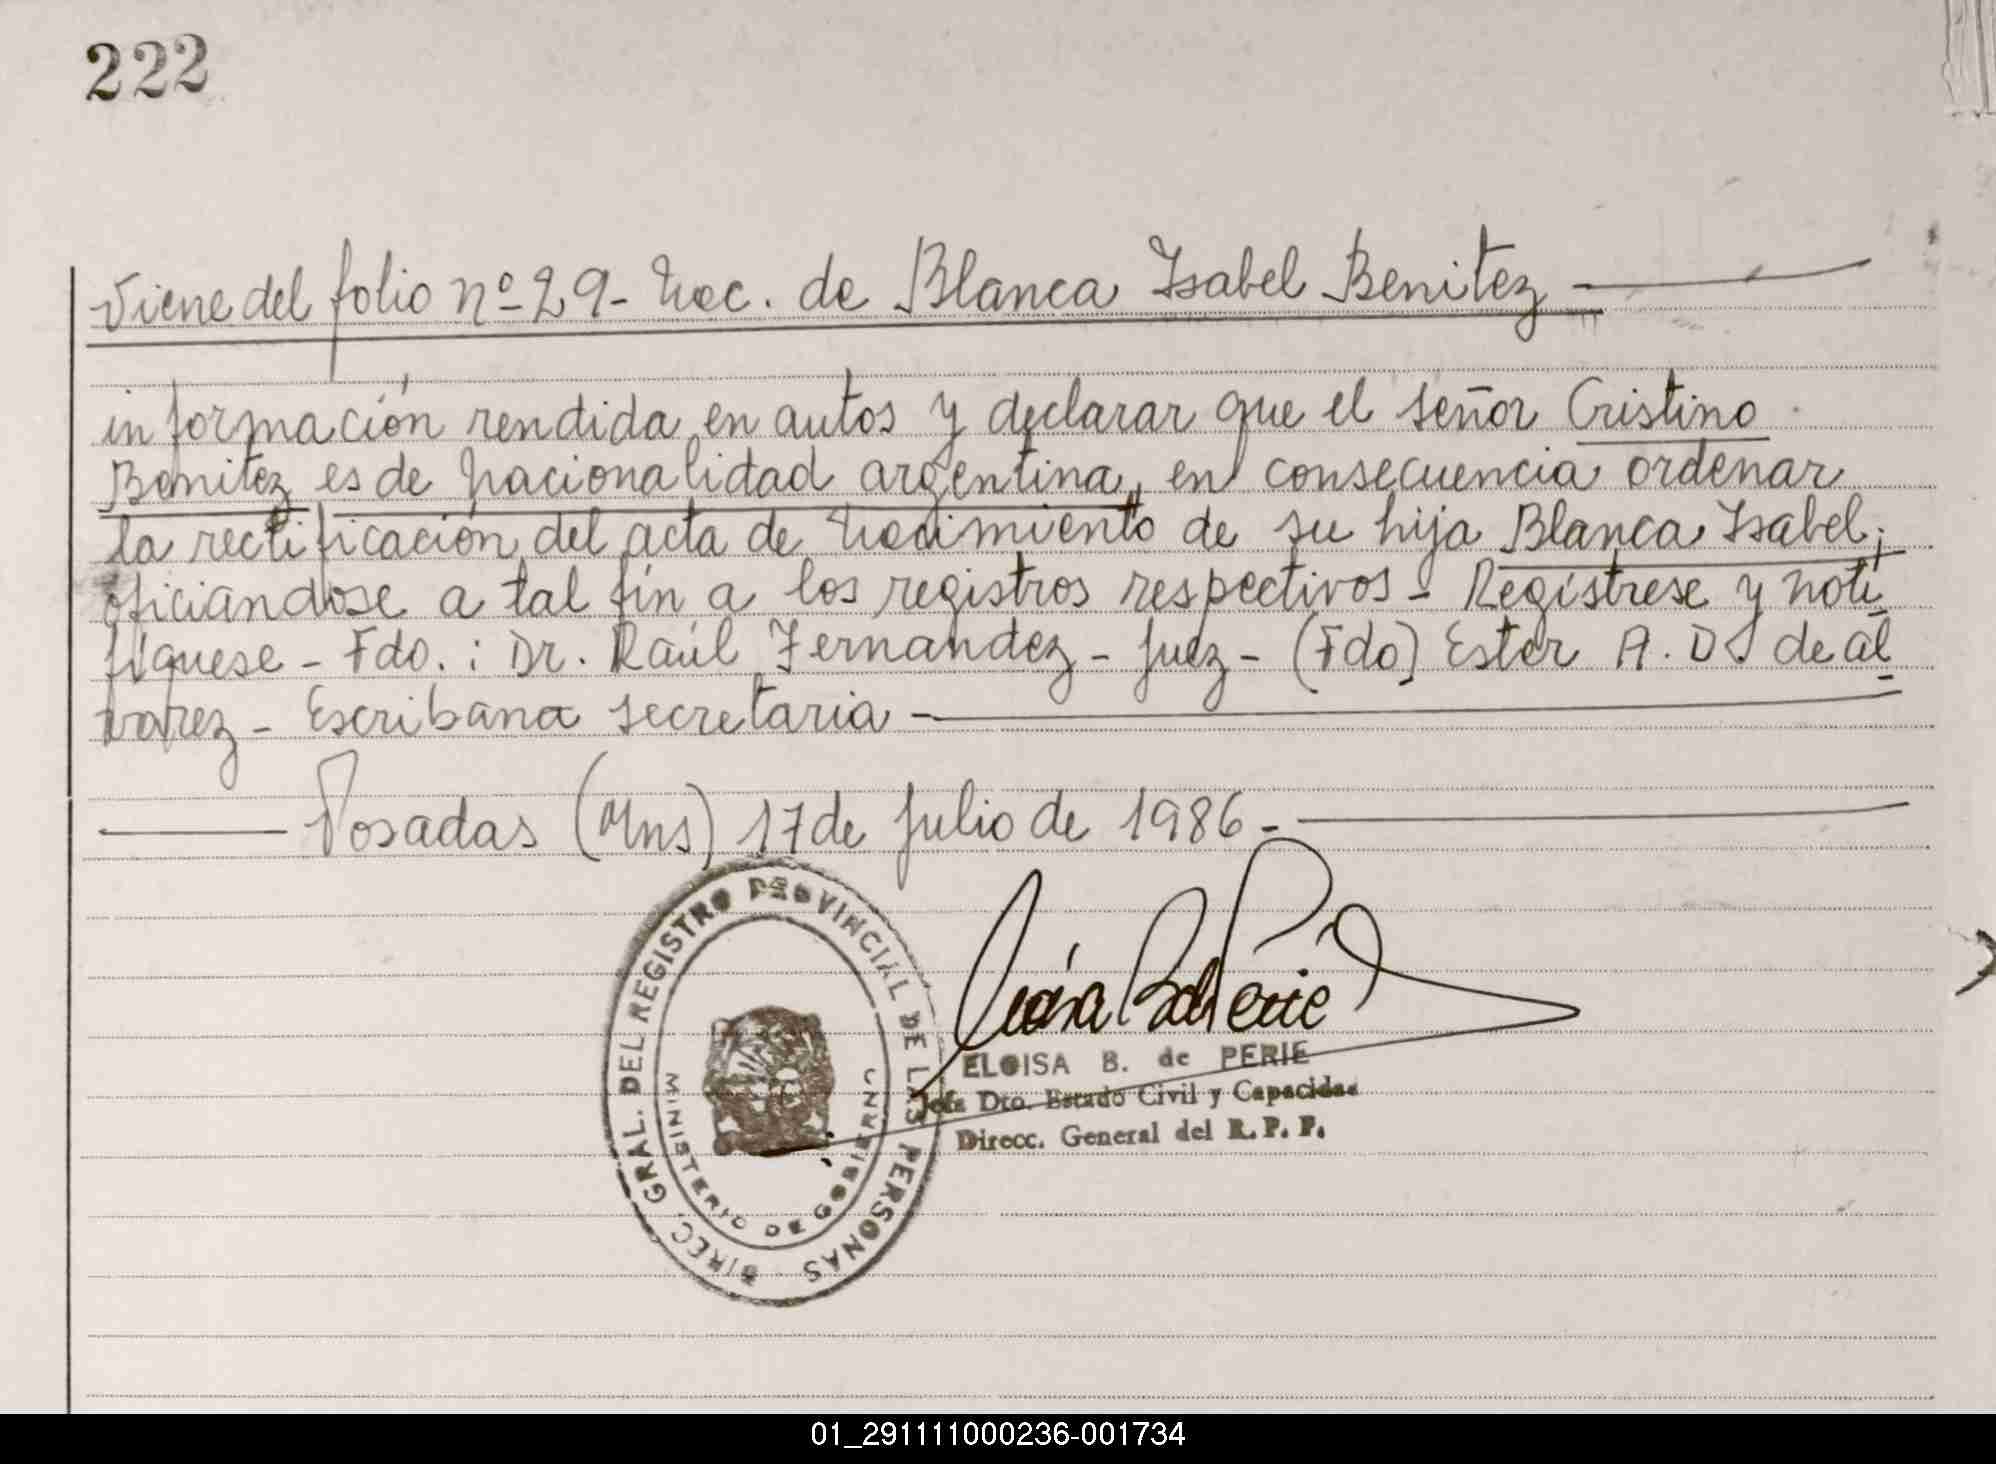 222
Viene del folio nº 29 - Nac. de Blanca Isabel Benitez
información rendida en autos y declarar que el señor Cristino
Benitez es de nacionalidad argentina, en consecuencia ordenar
la rectificación del acta de nacimiento de su hija Blanca Isabel;
oficiandose a tal fin a los registros respectivos - Regístrese y noti
fíquese - Fdo. : Dr. Raúl Fernandez - Juez - (Fdo) Ester A. D. de al
varez - Escribana secretaria -
Posadas (Mns) 17 de Julio de 1986 -
DIREC. GRAL. DEL REGISTRO PROVINCIAL DE LAS PERSONAS
MINISTERIO DE GOBIERNO
ELOISA B. de PERIE
Jefa Dto. Estado Civil y Capacidad
Direcc. General del R. P. P.
01_291111000236-001734